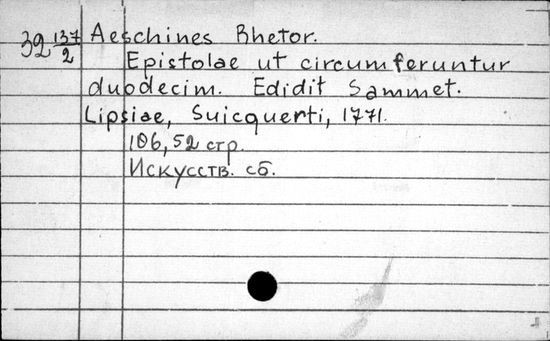 32 137/2 Aeschines Rhetor.
Epistolae ut circumferuntur
duodecim. Edidit Sammet.
Lipsiae, Suicquerti, 1771.
106, 52 стр.
Искусств. сб.